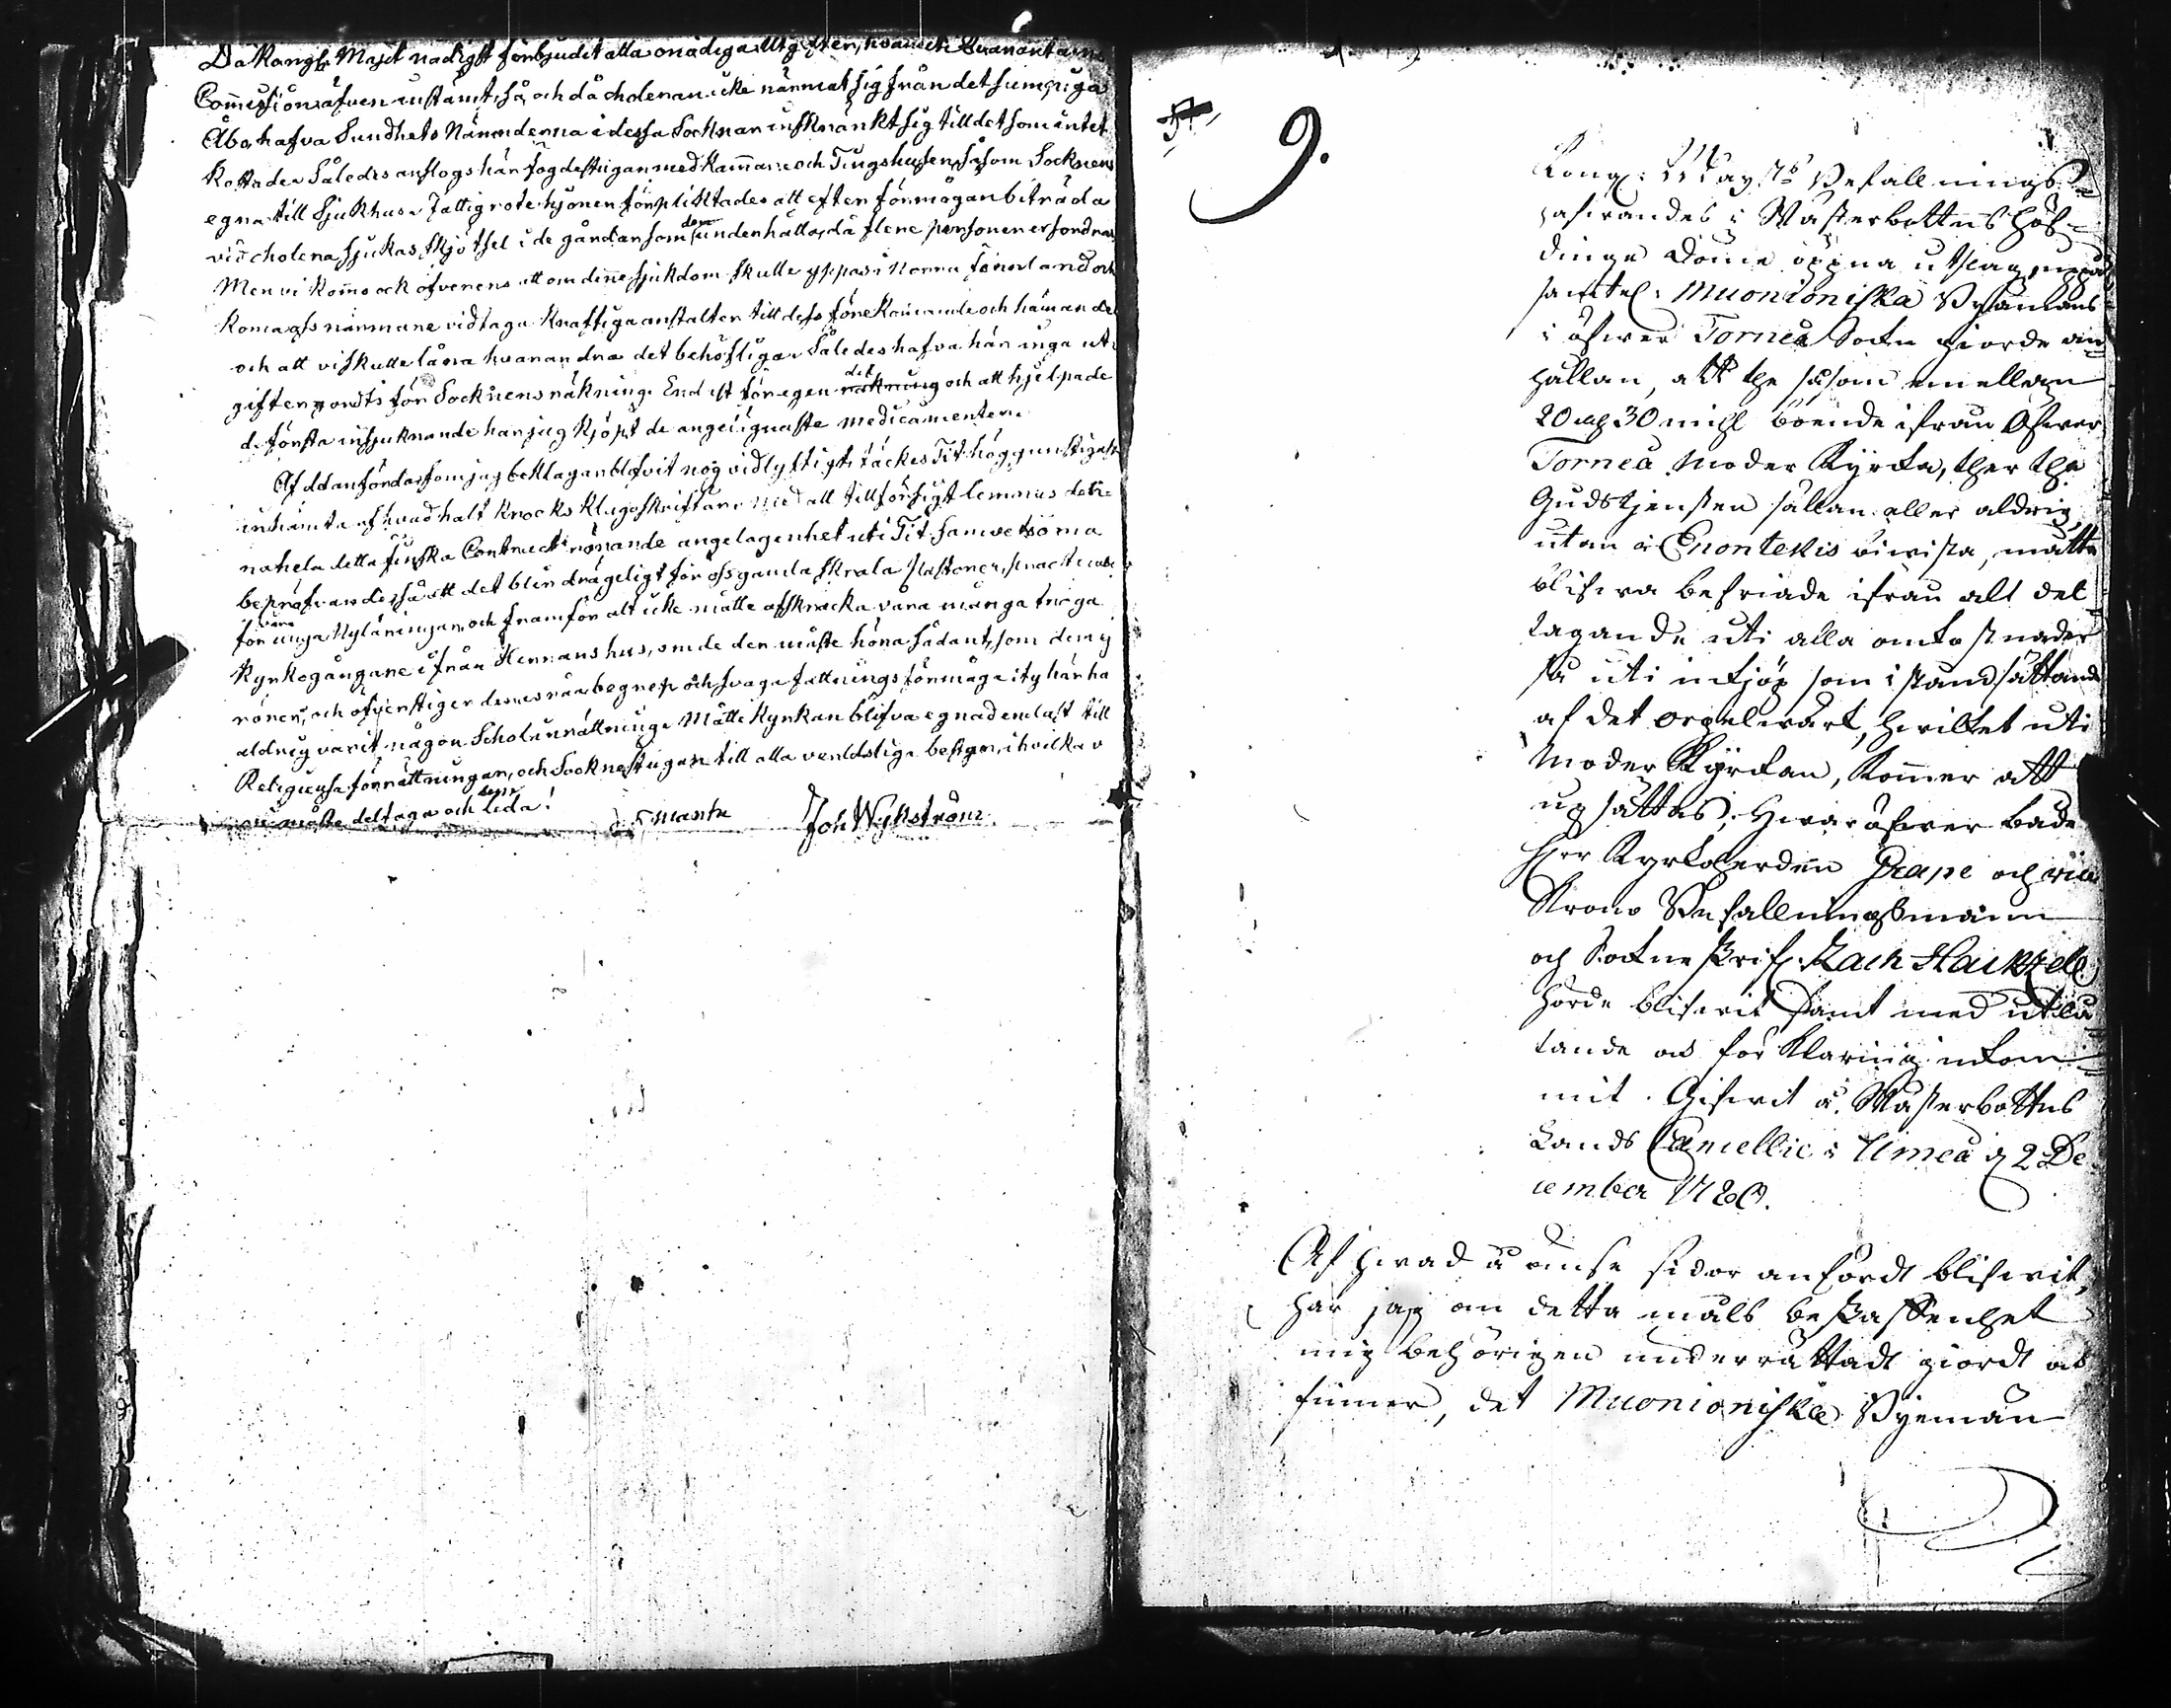 Da Kongl. Majst nådigst förbjudit alla onödiga Utgifter, hvaruti Quarantains
Commissionen äfven instämt, så, och då choleran icke närmat sig från det sumpiga
Åbo, hafva Sundhets Nämnderna i dessa Socknar inskränkt sig till det som intet
kostade. Således anslogs här fogdestugan med Kammare och Tingshusen, såsom Socknens
egna till Sjukhus. Fattigrotehjonen förpliktades att efter förmågan biträda
vid cholera sjukas skjötsel i de gårdar som dem underhålla, då flere personer erfordras
Men vi komo ock öfverens att om denne sjukdom skulle yppas i Norra
närmare vidtaga kraftiga anstalter till dess förekommande och hämmande
och att vi skulle låna hvarandra det behöfliga. Således hafva här inga ut-
gifter gjordts för Socknens räkning. Endast för egen del och att hjelpa de
de första insjuknande har jag kjöpt de angelägnaste medicamenter.
Af det anförda, som jag beklagar blifvit nog vidlyftigt, täckes Tit. höggunstigast
inhämta af hvad halt Krocks Klagoskrift är. Med all tillförsigt lemnas den-
na hela detta finska Contract rörande angelägenhet uti Tit. samvetsöma
bepröfvande, så att det blir drägeligt för oss gamla
för våra unga Nyläningar, och framför alt icke måtte afskräcka våra många tröga
Kyrkogångare ifrån Herrans hus, om de der måste höra sådant, som dem ej
rörer, och öfverstiger deras råa begrep och svaga fattnings förmåga, ity här ha
aldrig varit någon Scholinrättning. Måtte Kyrkan blifva egnad endast till
Religieusa förrättningar, och Socknestugan till alla verldsliga bestyr, i hvilka v
vi måste deltaga och leda!
Joh Wykström
9.
Kongl. May:ts Befallnings
hafvandes i Wästerbottns Höf-
dinge Döme öppna utslag, uppå
samtel: Muonioniska Byamäns
i öfwer Torneå Sockn giorde an-
hållan, att the såsom emellan
20 och 30 mihl boende ifrån Öfwer
Torneå Moder Kyrka, ther the
Gudstjensten sällan eller aldrig,
utan i Enontekis biwista, måtte
blifwa befriade ifrån alt del-
tagande uti alla omkostnader
så uti inkjöp som istandsättande
af det orgelwärk, hwilket uti
Moder Kyrkan, kommer att
upsättas; Hwaröfwer både
Herr Kyrkoherden Grape och wice
Krono Befallningsmannen
och Sockneskrif: Zach Hackzell
hörde blifwit samt med utlå-
tande och förklaring inkom-
mit. Gifwit å Wästerbottns
Lands Cancellie i Umeå d 2 De-
cember 1780.
Af hwad å ömse sidor anfördt blifwit,
har jag om detta måls beskaffenhet
mig behörigen underrättadt giordt och
finner, det Muonioniske Byemän